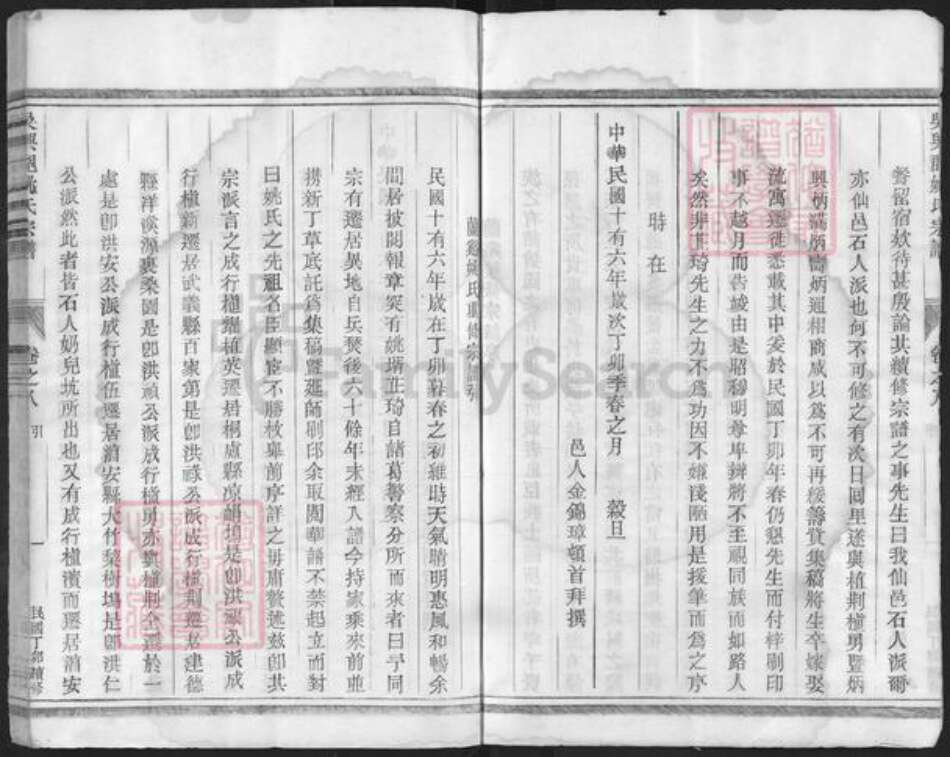 耆留宿欵待甚殷論共續修宗譜之事先生曰我仙邑石人派爾
亦仙邑石人派也何不可修之有次日回里遂與植荆植勇暨炳
興炳滿炳高炳通相商咸以爲不可再緩籌貲集稿將生卒嫁娶
流寓遷徙悉載其中爰於民國丁卯年春仍懇先生而付梓剞印
事不越月而告竣由是昭穆明尊卑辨將不至視同族而如路人
矣然非其琦先生之力不爲功因不嫌淺陋用是援筆而爲之序
時在
中華民國十有六年歲次丁卯季春之月 穀旦
邑人金錫璋頓首拜撰
蘭谿姚氏重修宗譜引
民國十有六年歲在丁卯暮春之初維時天氣晴明惠風和暢余
間居披閱報章突有姚壻其琦自諸葛警察分所而來者曰予同
宗有遷居異地自兵燹後六十餘年未經入譜今持家乘來前並
携新丁草底託爲集稿暨延師剞印余取閱華譜不禁起立而對
曰姚氏之先祖名臣顯宦不勝枚舉前序詳之毋庸贅述茲卽其
宗派言之成行植繼植英遷居桐廬縣凉帽塢是卽洪 公派成
行植新遷居武義縣百家第是卽洪祿公派成行植荆遷居建德
縣洋溪源裏桑園是卽洪禎公派成行植勇亦與植荆仝遷於一
處是卽洪安公派成行植伍遷居湻安縣大竹梨樹塢是卽洪仁
公派然此者皆石人奶兒坑所出也又有成行植濱而遷居湻安
吳興郡姚氏宗譜
卷之八
引
一
民國丁卯續修